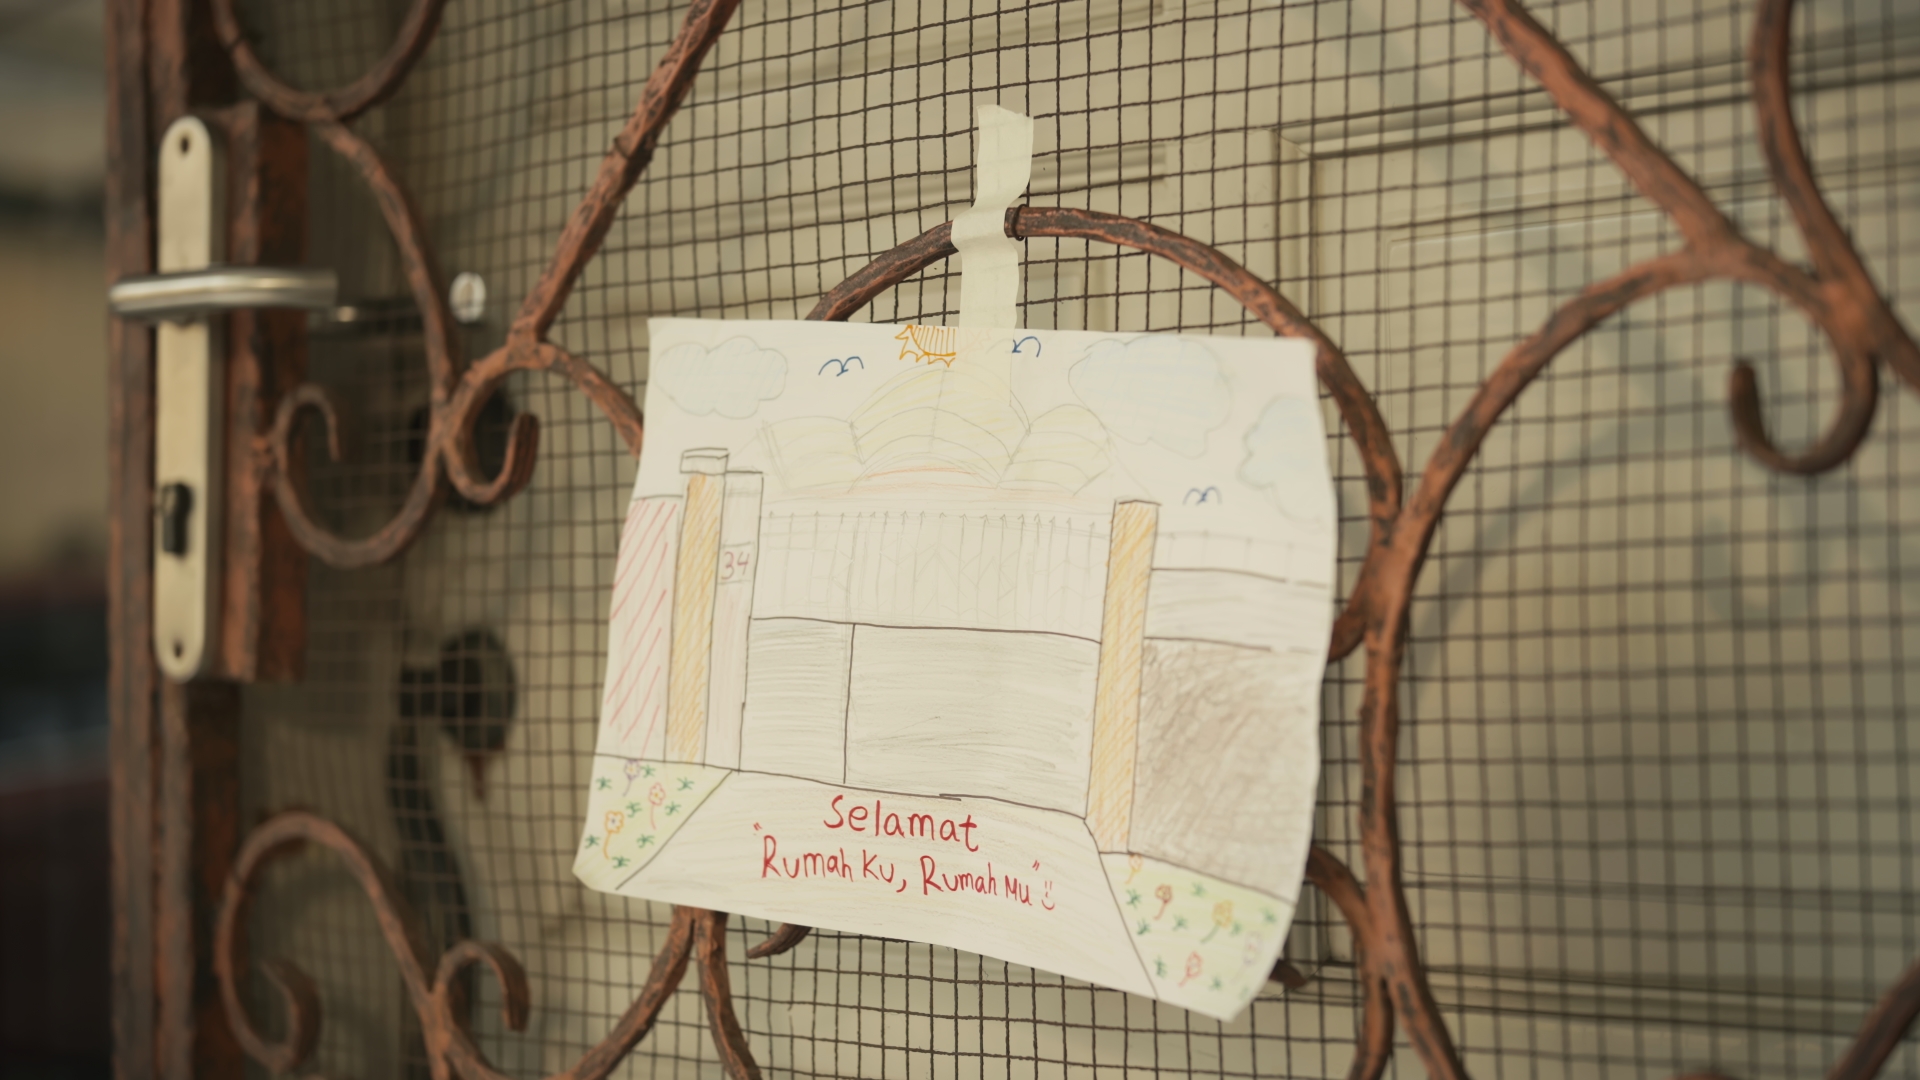 34
Selamat
"Rumah Ku, Rumah Mu" :)